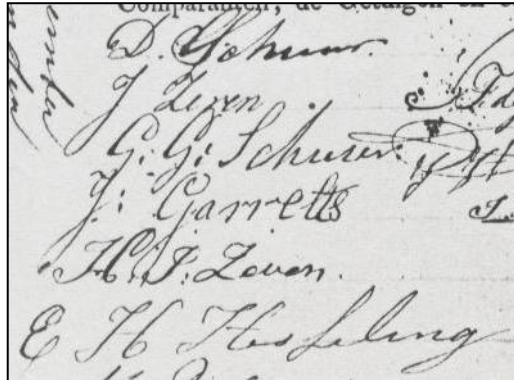 Comparanten, de Getuigen en
D. Schuur.
J Zeven
G. G. Schuur.
J. Garrelts
H. J. Zeven.
E H Hesseling